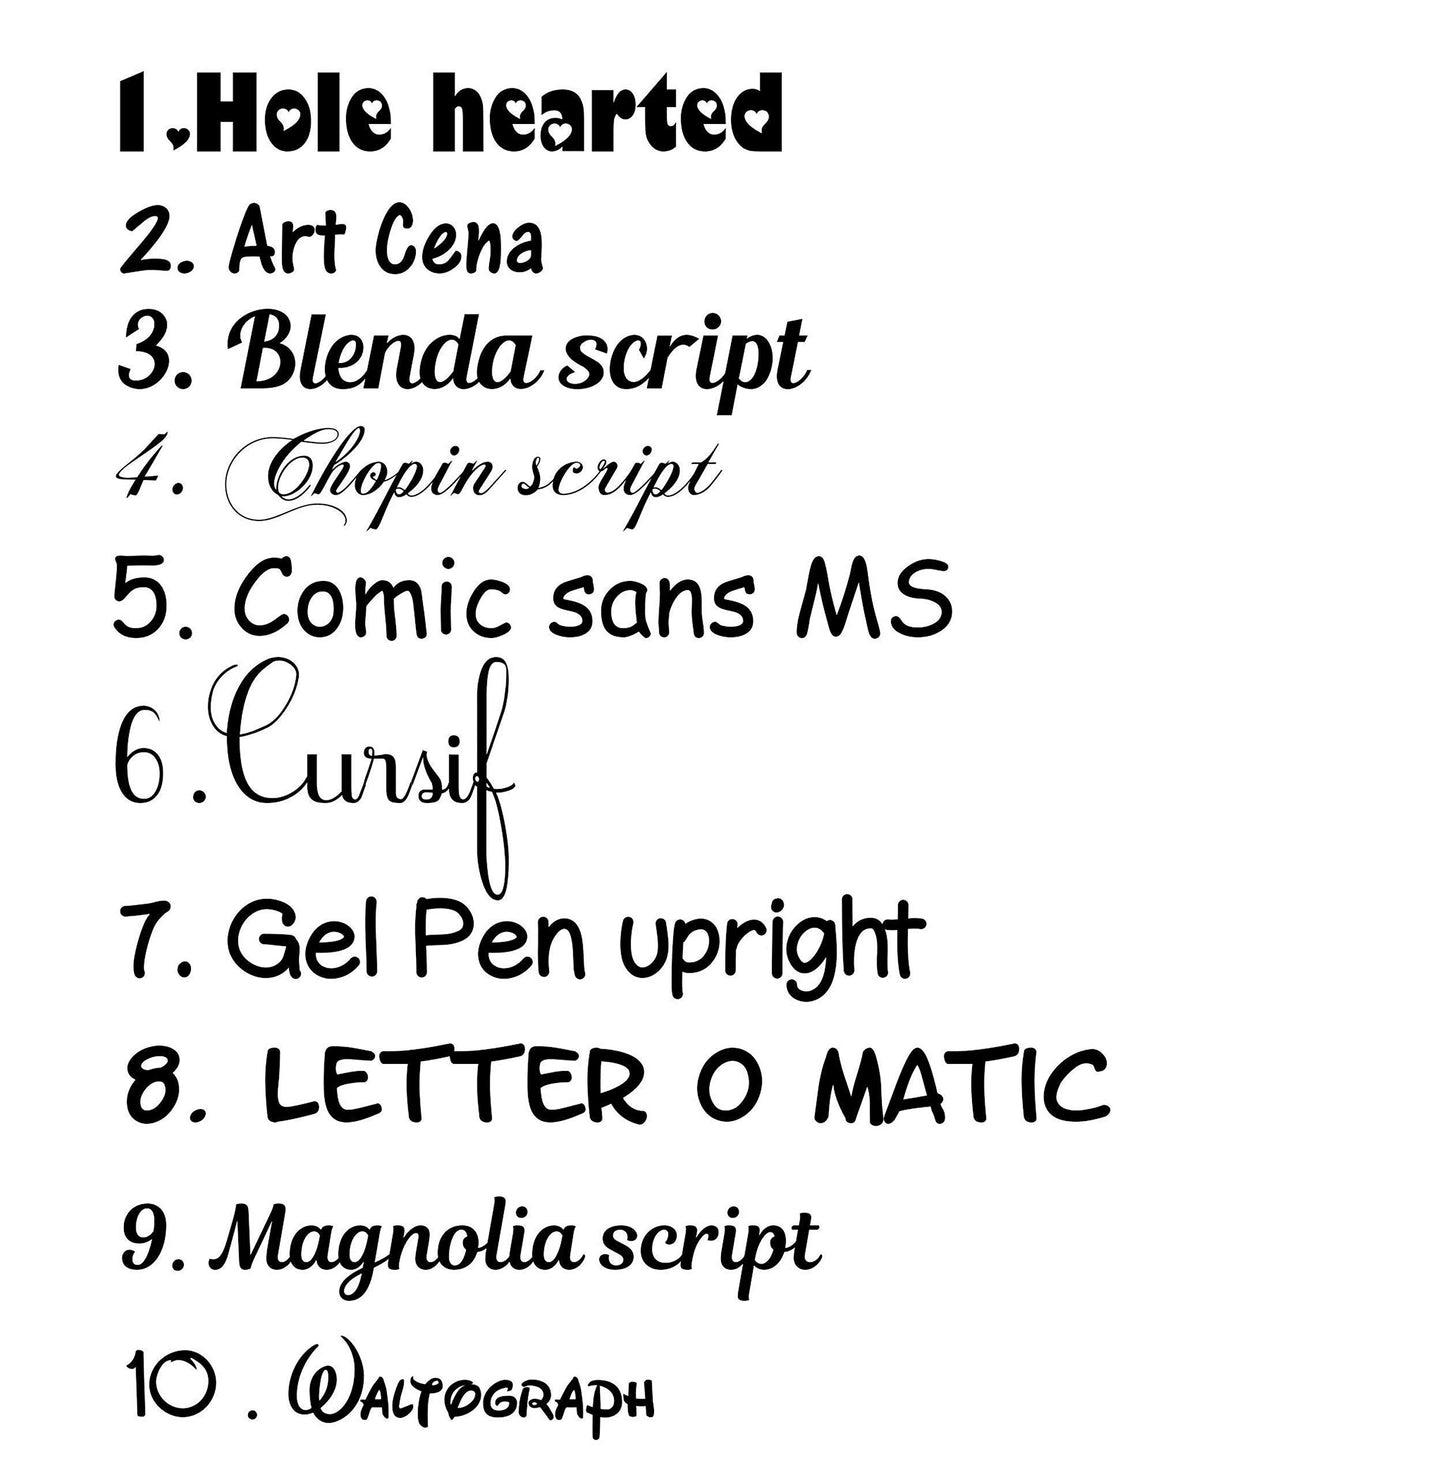 1.Hole hearted
2. Art Cena
3. Blenda script
4. Chopin script
5. Comic sans MS
6 .Cursif
7. Gel Pen upright
8. LETTER O MATIC
9. Magnolia script
10 . Waltograph